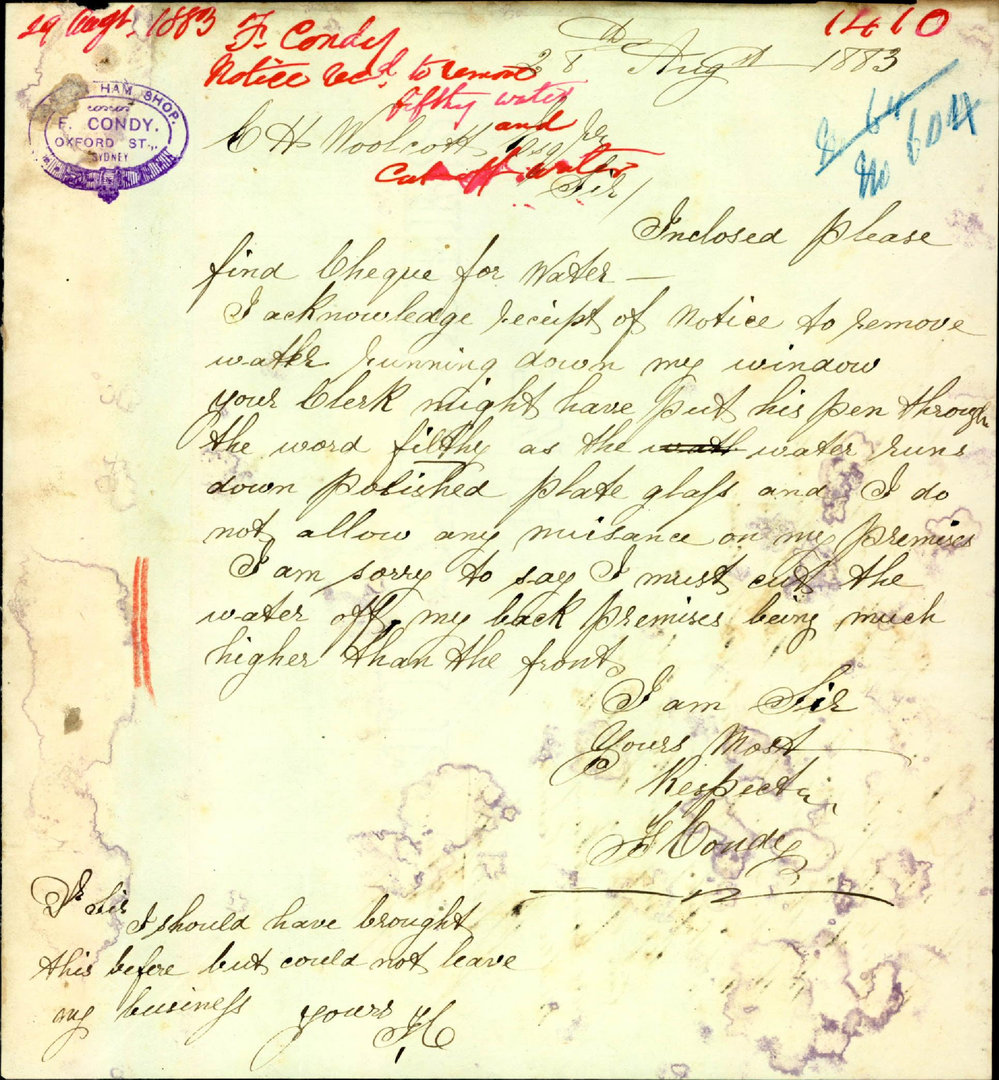 29 Augt. 1883
1410
F. Condy
Notice recd. to remove
filthy water
and
Cut off water
28th Augst 1883
HAM SHOP.
F. CONDY.
OXFORD ST.,
SYDNEY
No 604
C H Woolcott Esq
Sir/
Inclosed please
find Cheque for Water —
I acknowledge receipt of Notice to remove
water running down my window
your Clerk might have put his pen through
the word filthy as the wath water runs
down polished plate glass and I do
not allow any nuisance on my premises
I am sorry to say I must cut the
water off, my back premises being much
higher than the front
I am Sir
Yours Most
Respect
F Condy
Dr Sir I should have brought
this before but could not leave
my business yours FC